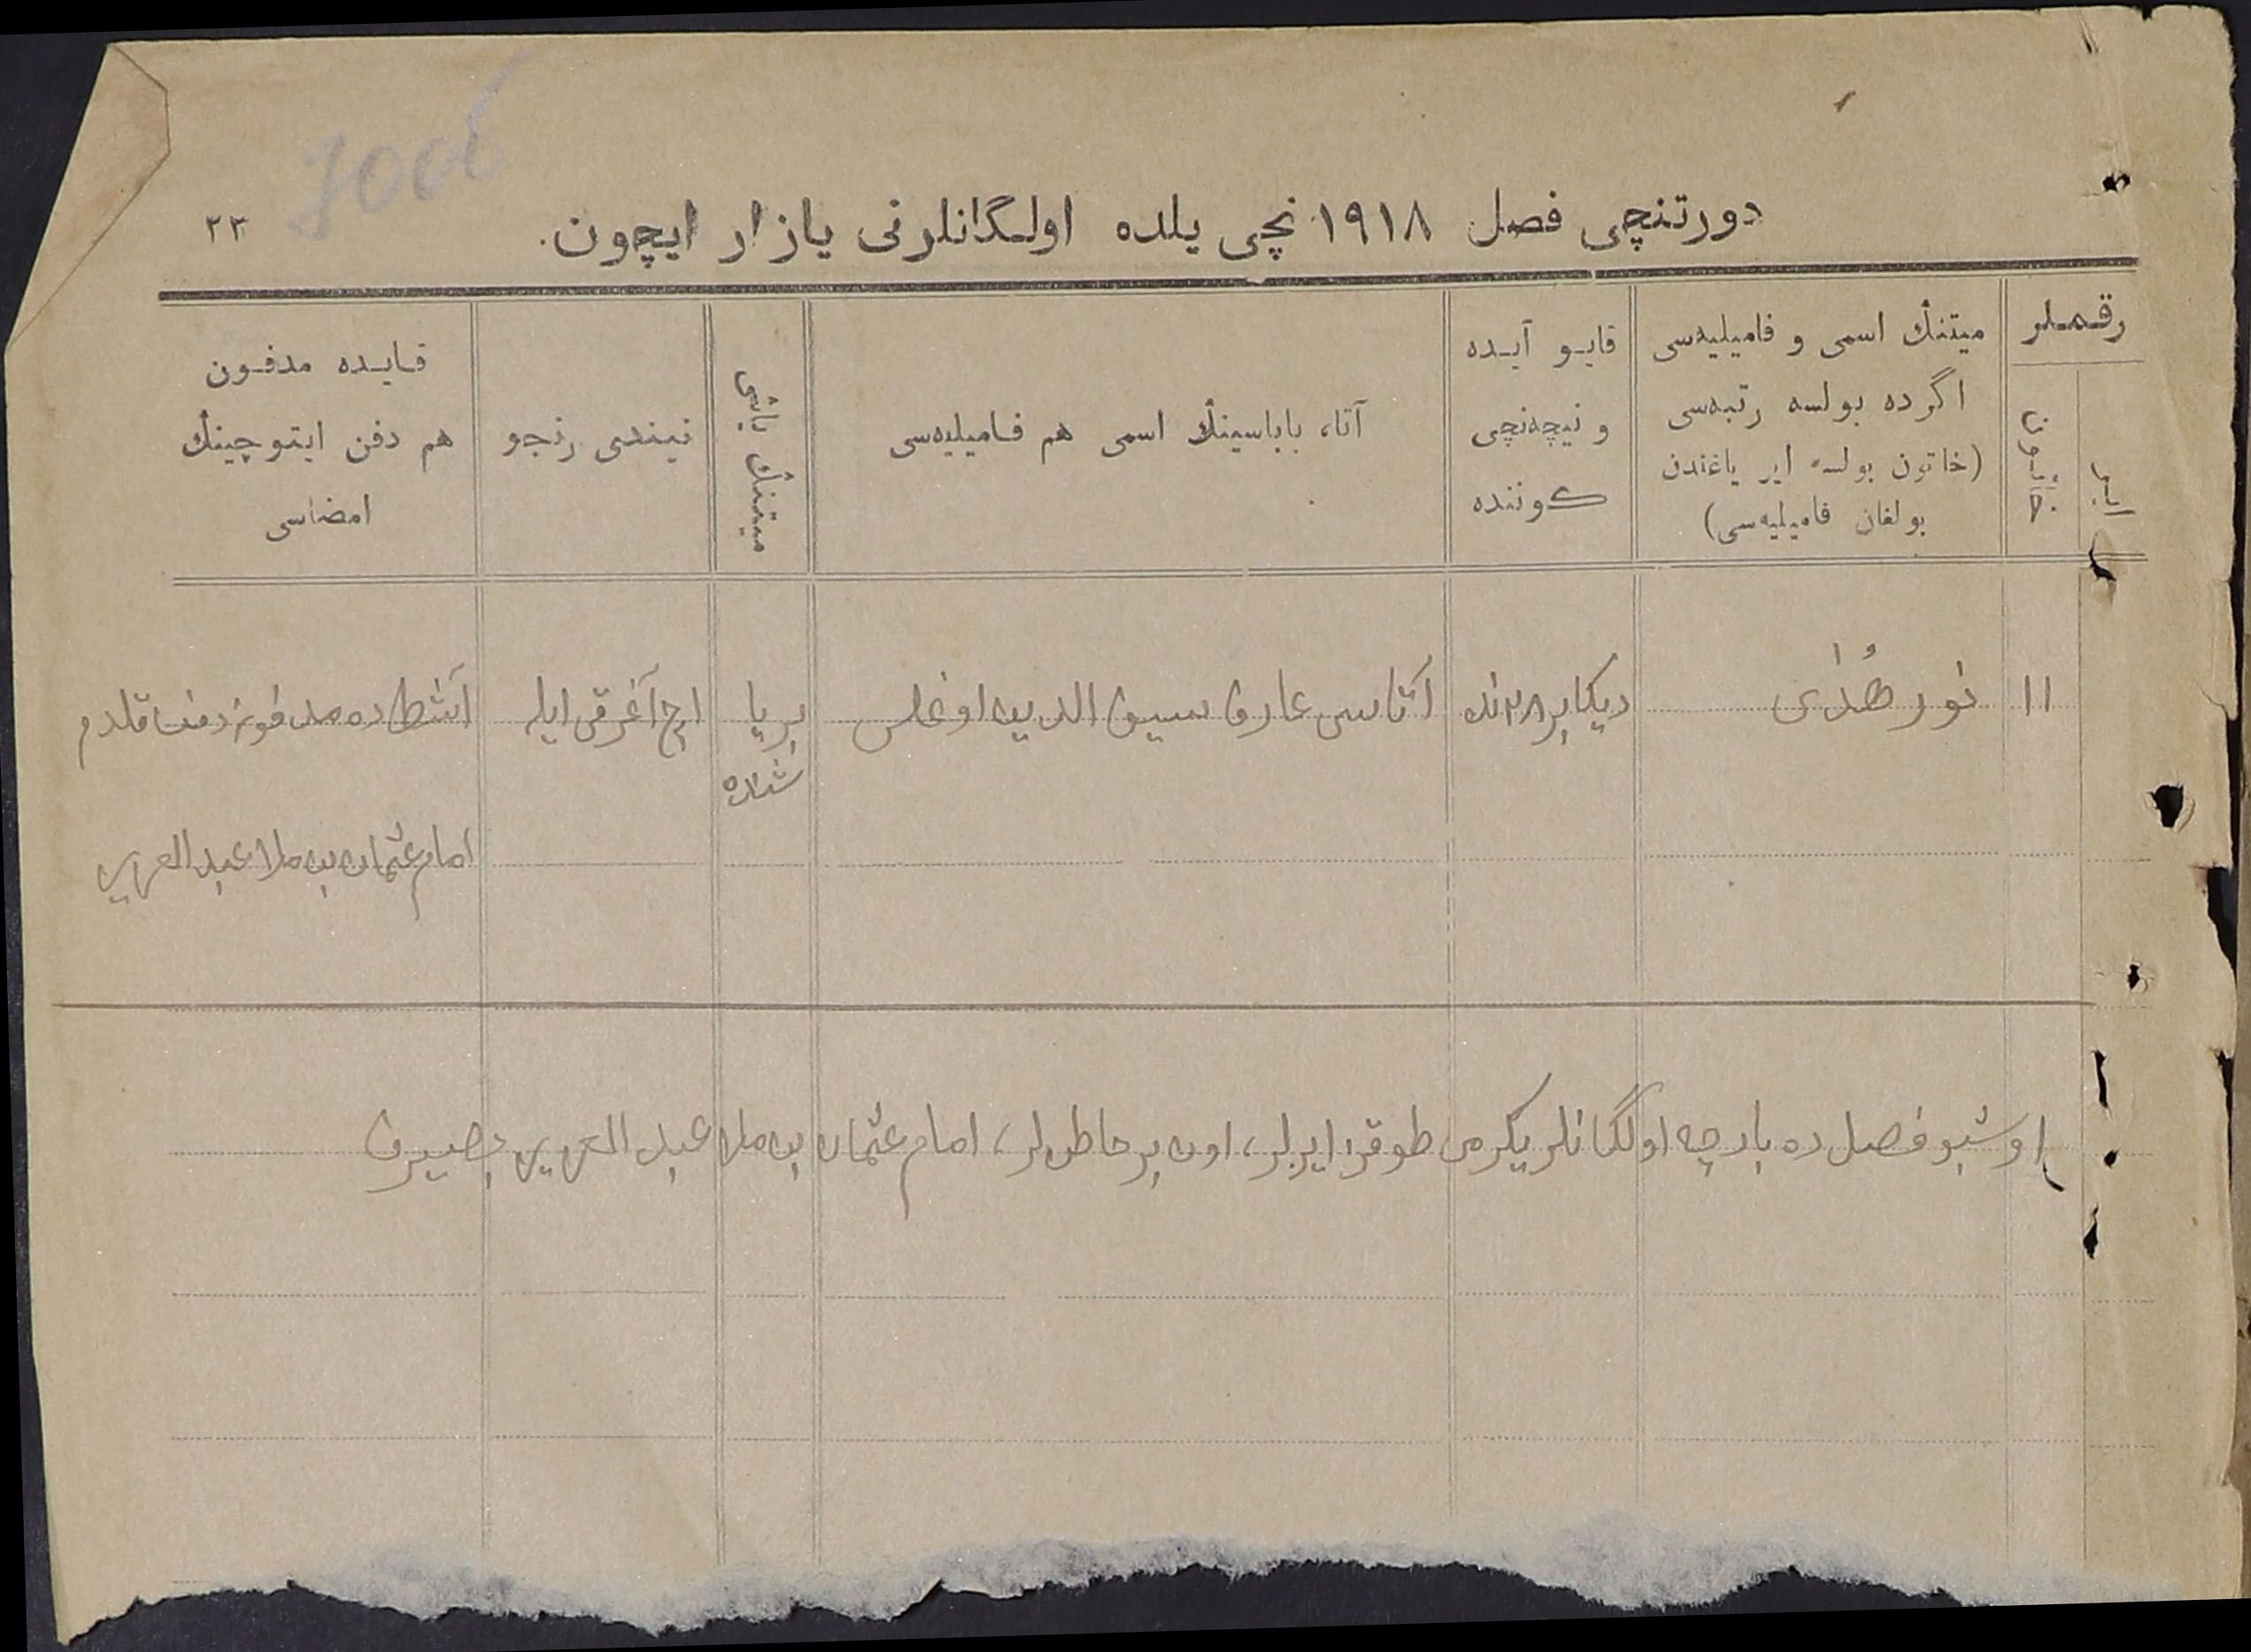 700б
دورتنچی فصل ١٩١٨ نچی یلده اولگانلرنی یازار ایچون.
٢٣
رقملر
ایر
خاتون
میتنڭ اسمی و فامیلیه‌سی
اگرده بولسه رتبه‌سی
(خاتون بولسه ایر یاغندن
بولغان فامیلیه‌سی)
قایو آیده
و نیچه‌نچی
كوننده
آتا، باباسینڭ اسمی هم فامیلیه‌سی
میتننڭ یاشی
نیندی رنجو
قایده مدفون
هم دفن ایتوچینڭ
امضاسی
١١
نور هُدٰی
دیکابر ٢٨ نده
آتاسی عارف سیف الدین اوغلی
بر یا
شنده
ایچ آغرقی ایله
ده مدفون دفن قلدم
امام عثمان بن ملا عبد العزیز
اوشبو فصل ده بارچه اولگانلر یکرمی طوقز ایرلر، اون بر خاطنلر، امام عثمان بن ملا عبد العزیز بصیروف